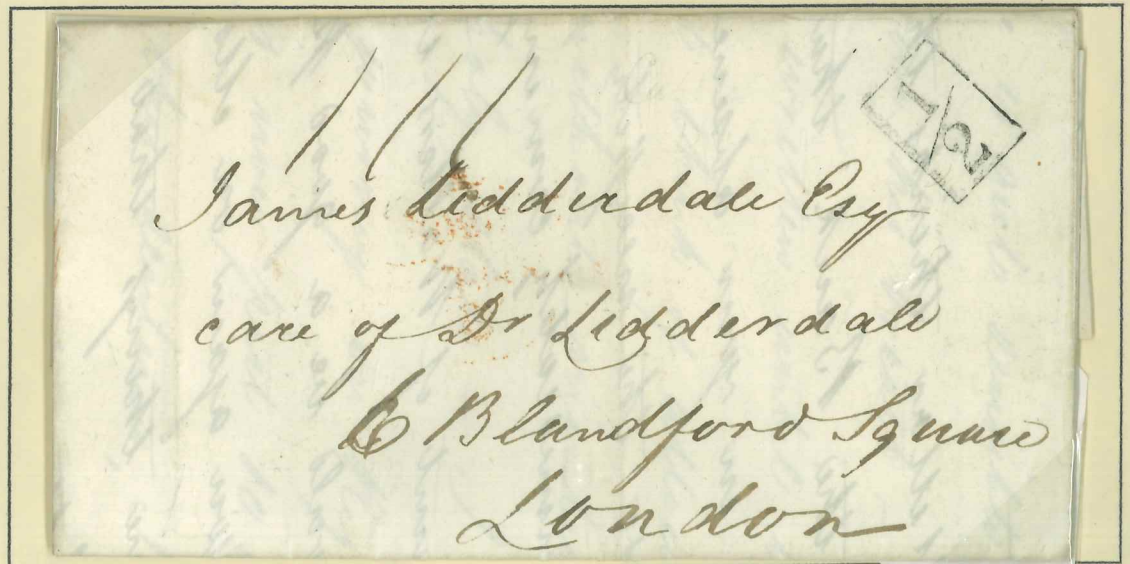 1/2
James Lidderdale Esq
care of Dr Lidderdale
6 Blandford Square
London